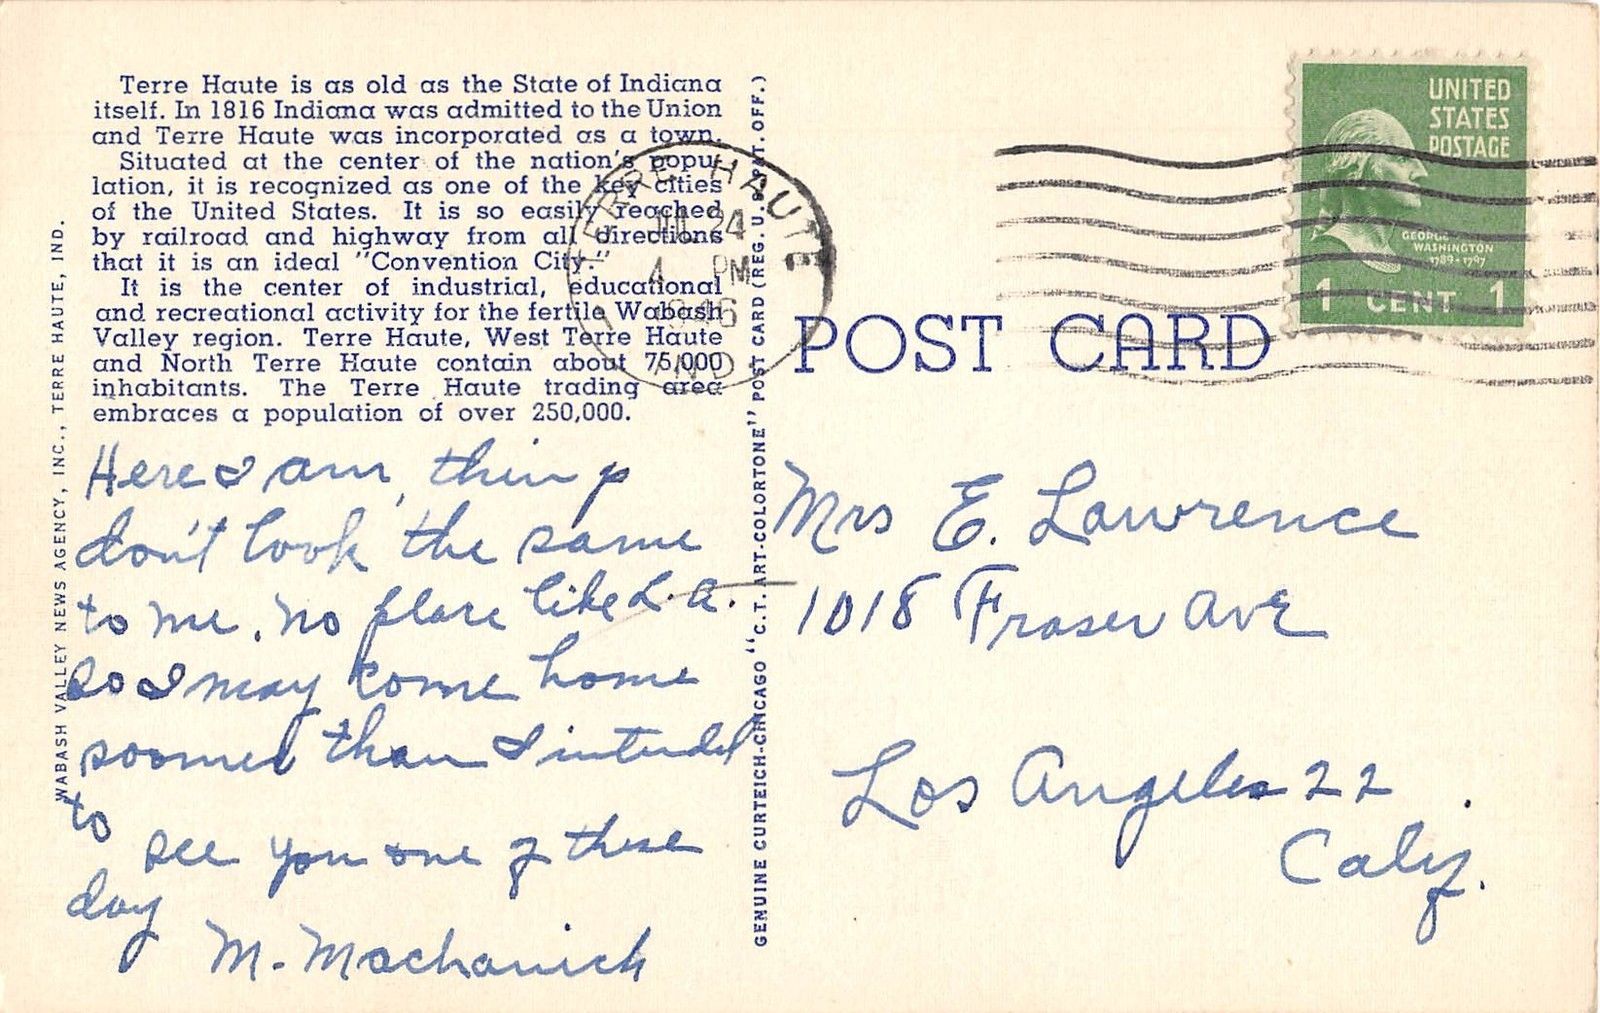 Terre Haute is as old as the State of Indiana
itself. In 1816 Indiana was admitted to the Union
and Terre Haute was incorporated as a town.
Situated at the center of the nation's popu-
lation, it is recognized as one of the key cities
of the United States. It is so easily reached
by railroad and highway from all directions
that it is an ideal "Convention City."
It is the center of industrial, educational
and recreational activity for the fertile Wabash
Valley region. Terre Haute, West Terre Haute
and North Terre Haute contain about 75,000
inhabitants. The Terre Haute trading area
embraces a population of over 250,000.
Here I am, things
don't look the same
to me. No place like L.A.
So I may come home
sooner than I intended
to
see you one of these
day
M.
WABASH VALLEY NEWS AGENCY, INC., TERRE HAUTE, IND.
GENUINE CURTEICH-CHICAGO "C.T. ART-COLORTONE" POST CARD (REG. U.S. PAT. OFF.)
TERRE HAUTE
JUL 24
4 PM
1946
IND.
UNITED
STATES
POSTAGE
GEORGE
WASHINGTON
1789-1797
1 CENT 1
POST CARD
Mrs E. Lawrence
1018 Fraser Ave
Los Angeles 22
Calif.